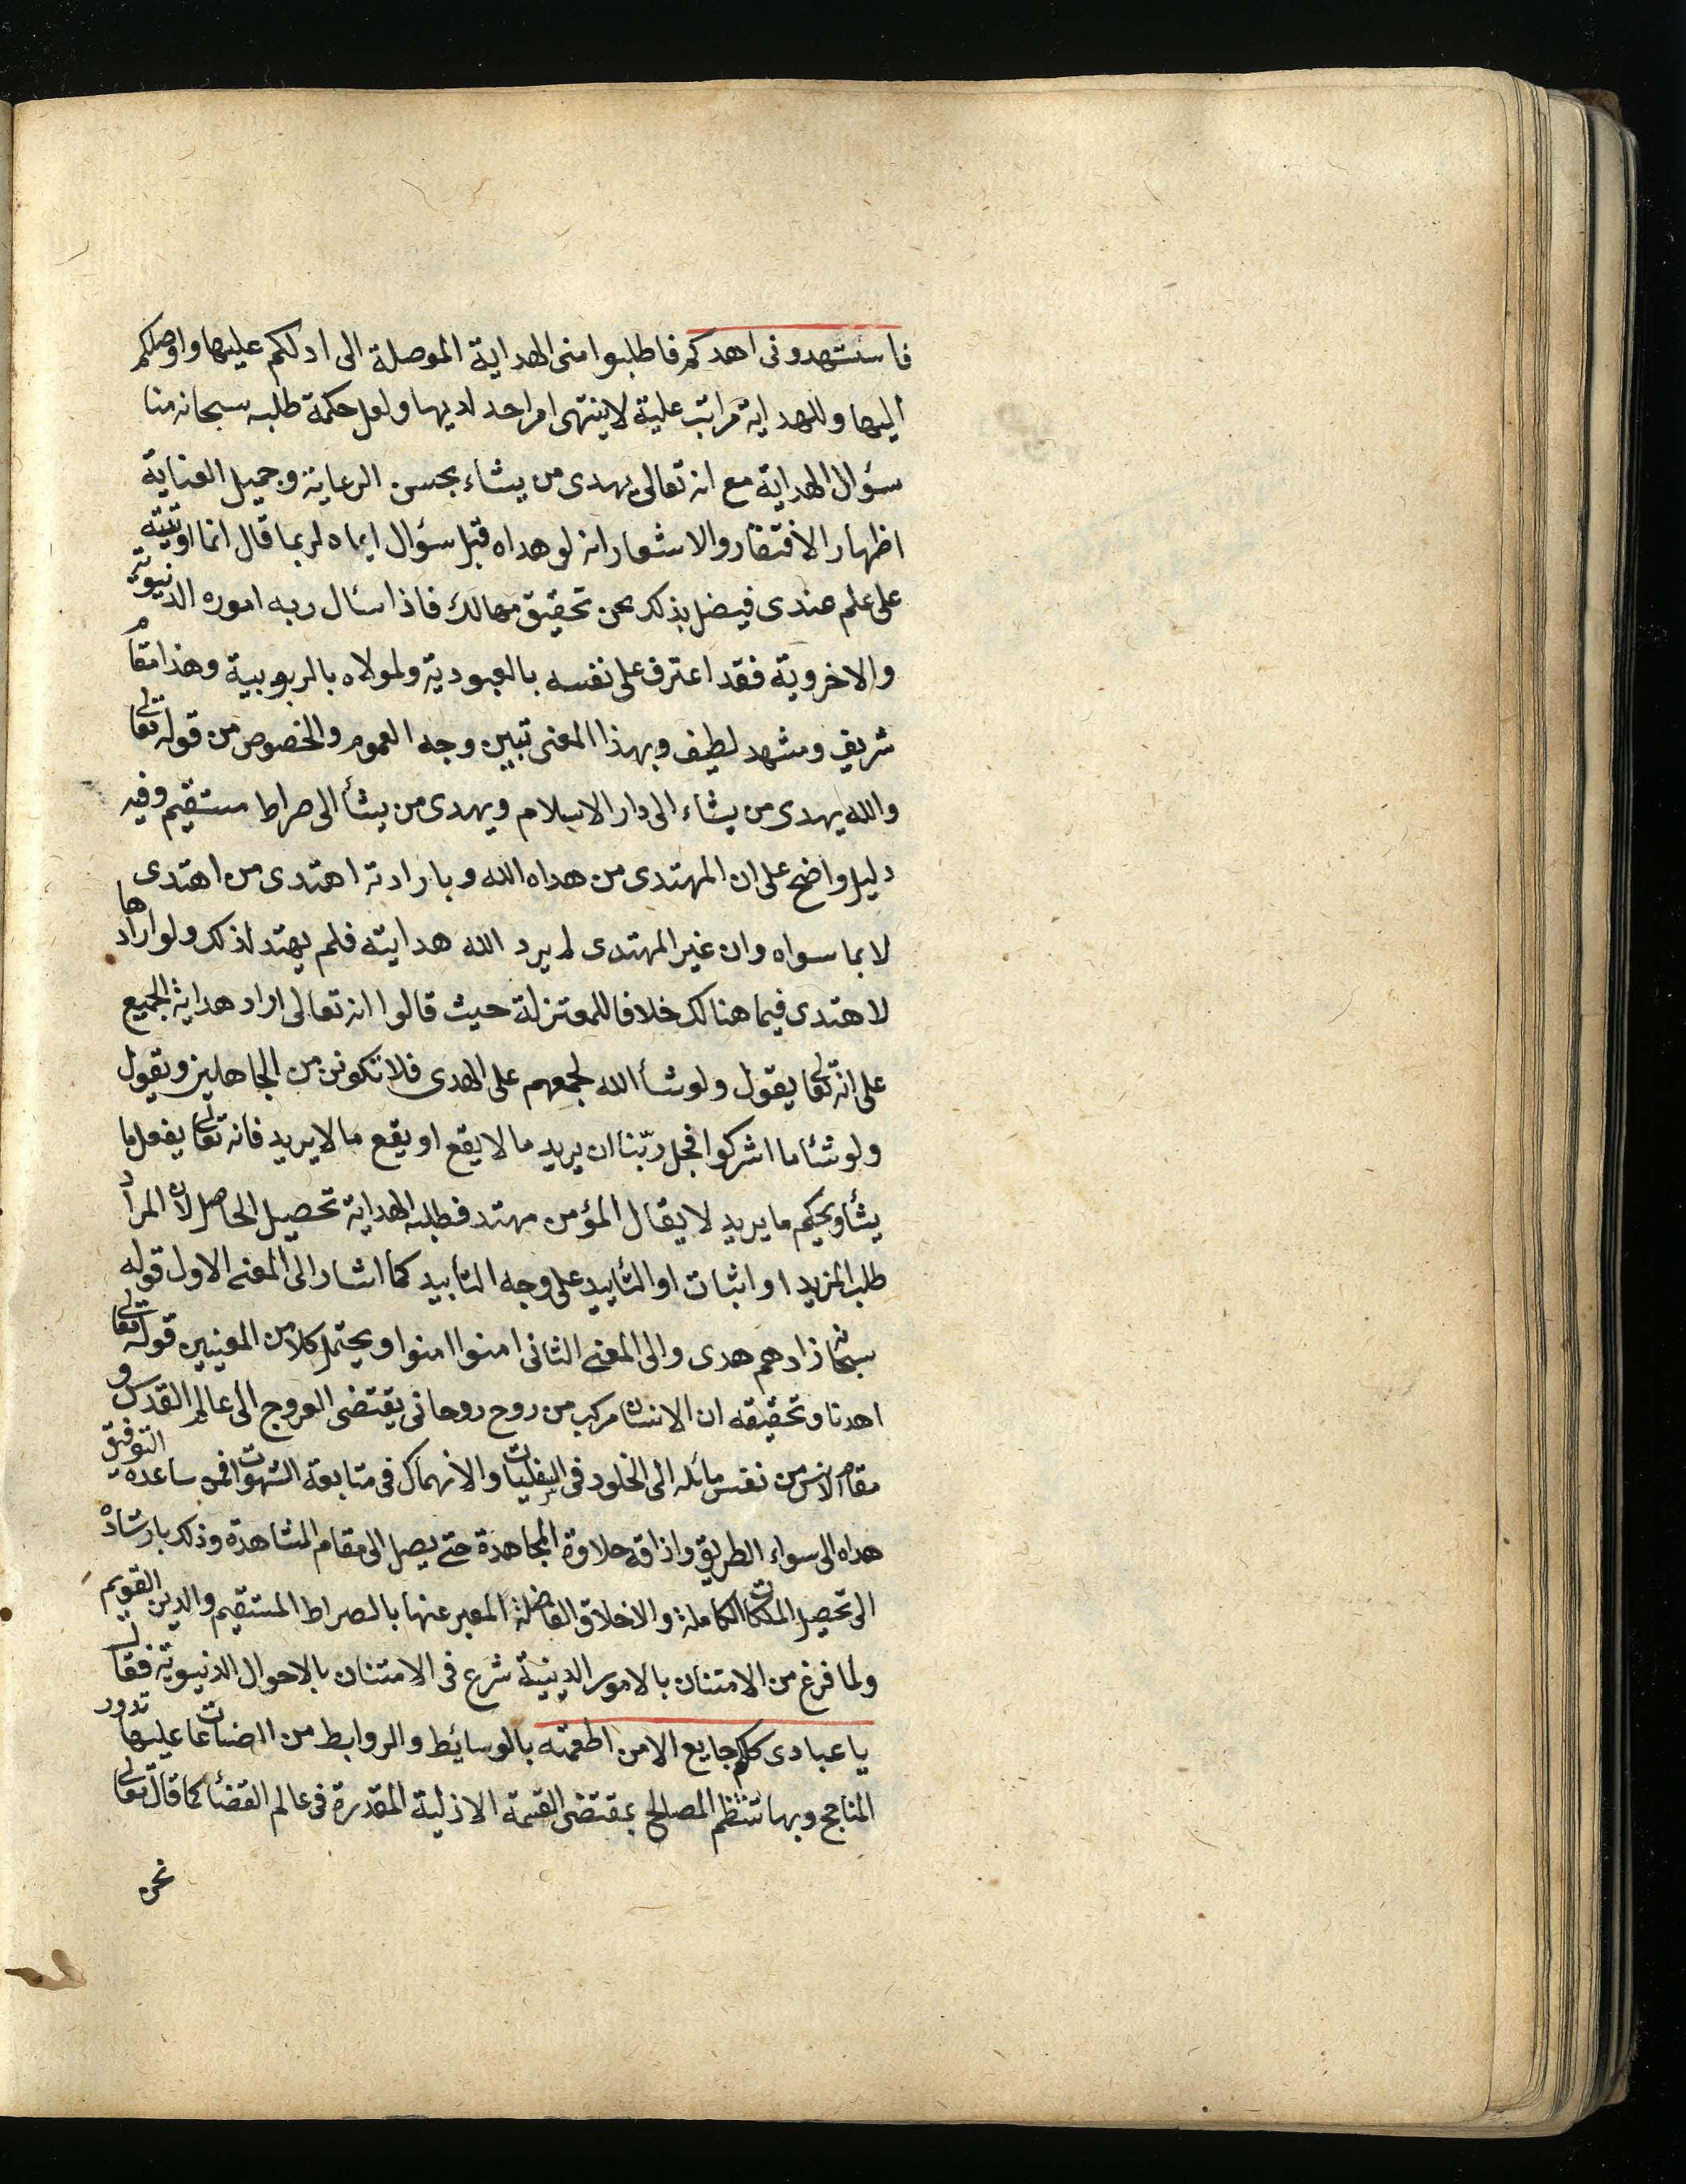 فاستهدونى اهدكم فاطلبوا منى الهداية الموصلة الى ادلكم عليها واوصلكم
اليها وللهداية مراتب علية لا ينتهى امر احد لديها ولعل حكمة طلبه سبحانه منا
سؤال الهداية مع انه تعالى يهدى من يشاء بحسن الرعاية وجميل العناية
اظهار الافتقار والاشعار انه لو هداه قبل سؤال اياه لربما قال انما اوتيته
على علم عندى فيضل بذلك عن تحقيق مهالك فاذا سئال ربه اموره الدنيوية
والاخروية فقد اعترف على نفسه بالعبودية ولمولاه بالربوبية وهذا مقام
شريف ومشهد لطيف وبهذا المعنى تبين وجه العموم والخصوص من قوله تعالى
والله يهدى من يشاء الى دار الاسلام ويهدى من يشأ الى صراط مستقيم وفيه
دليل واضح على ان المهتدى من هداه الله وبارادته اهتدى من اهتدى
لا بما سواه وان غير المهتدى لم يرد الله هدايته فلم يهتد لذلك ولو ارادها
لاهتدى فيما هنالك خلافا للمعتزلة حيث قالوا انه تعالى اراد هداية الجميع
على انه تعالى يقول ولو شأ الله لجمعهم على الهدى فلا تكونن من الجاهلين ويقول
ولو شئا ما اشركوا فجل ربّنا ان يريد ما لا يقع او يقع ما لا يريد فانه تعالى يفعل ما
يشأ ويحكم ما يريد لا يقال المؤمن مهتد فطلبه الهداية تحصيل الحاصل لان المراد
طلب المزيد او اثبات او التأييد على وجه التابيد كما اشار الى المعنى الاول قوله
سبحانه زادهم هدى والى المعنى الثانى امنوا امنوا ويحتمل كلا من المعنيين قوله تعالى
اهدنا وتحقيقه ان الانسان مركب من روح روحانى يقتضى العروج الى عالم القدس و
مقام الانس من نفس مائله الى الخلود فى السفليات والانهماك فى متابعة الشهوات فمن ساعده التوفيق
هداه الى سواء الطريق واذاقه حلاوة المجاهدة حتى يصل الى مقام المشاهدة وذلك بارشاده
الى تحصيل الملكات الكاملة والاخلاق الفاضلة المعبر عنها بالصراط المستقيم والدين القويم
ولما فرغ من الامتنان بالامور الدينية شرع فى الامتنان بالاحوال الدنيوية فقال
يا عبادى كلكم جايع الا من اطعمته بالوسائط والروابط من الصناعات عليها تدور
المناجح وبها تنتظم المصالح بمقتضى القسمة الازلية المقدرة فى عالم القضأ كما قال تعالى
نحن